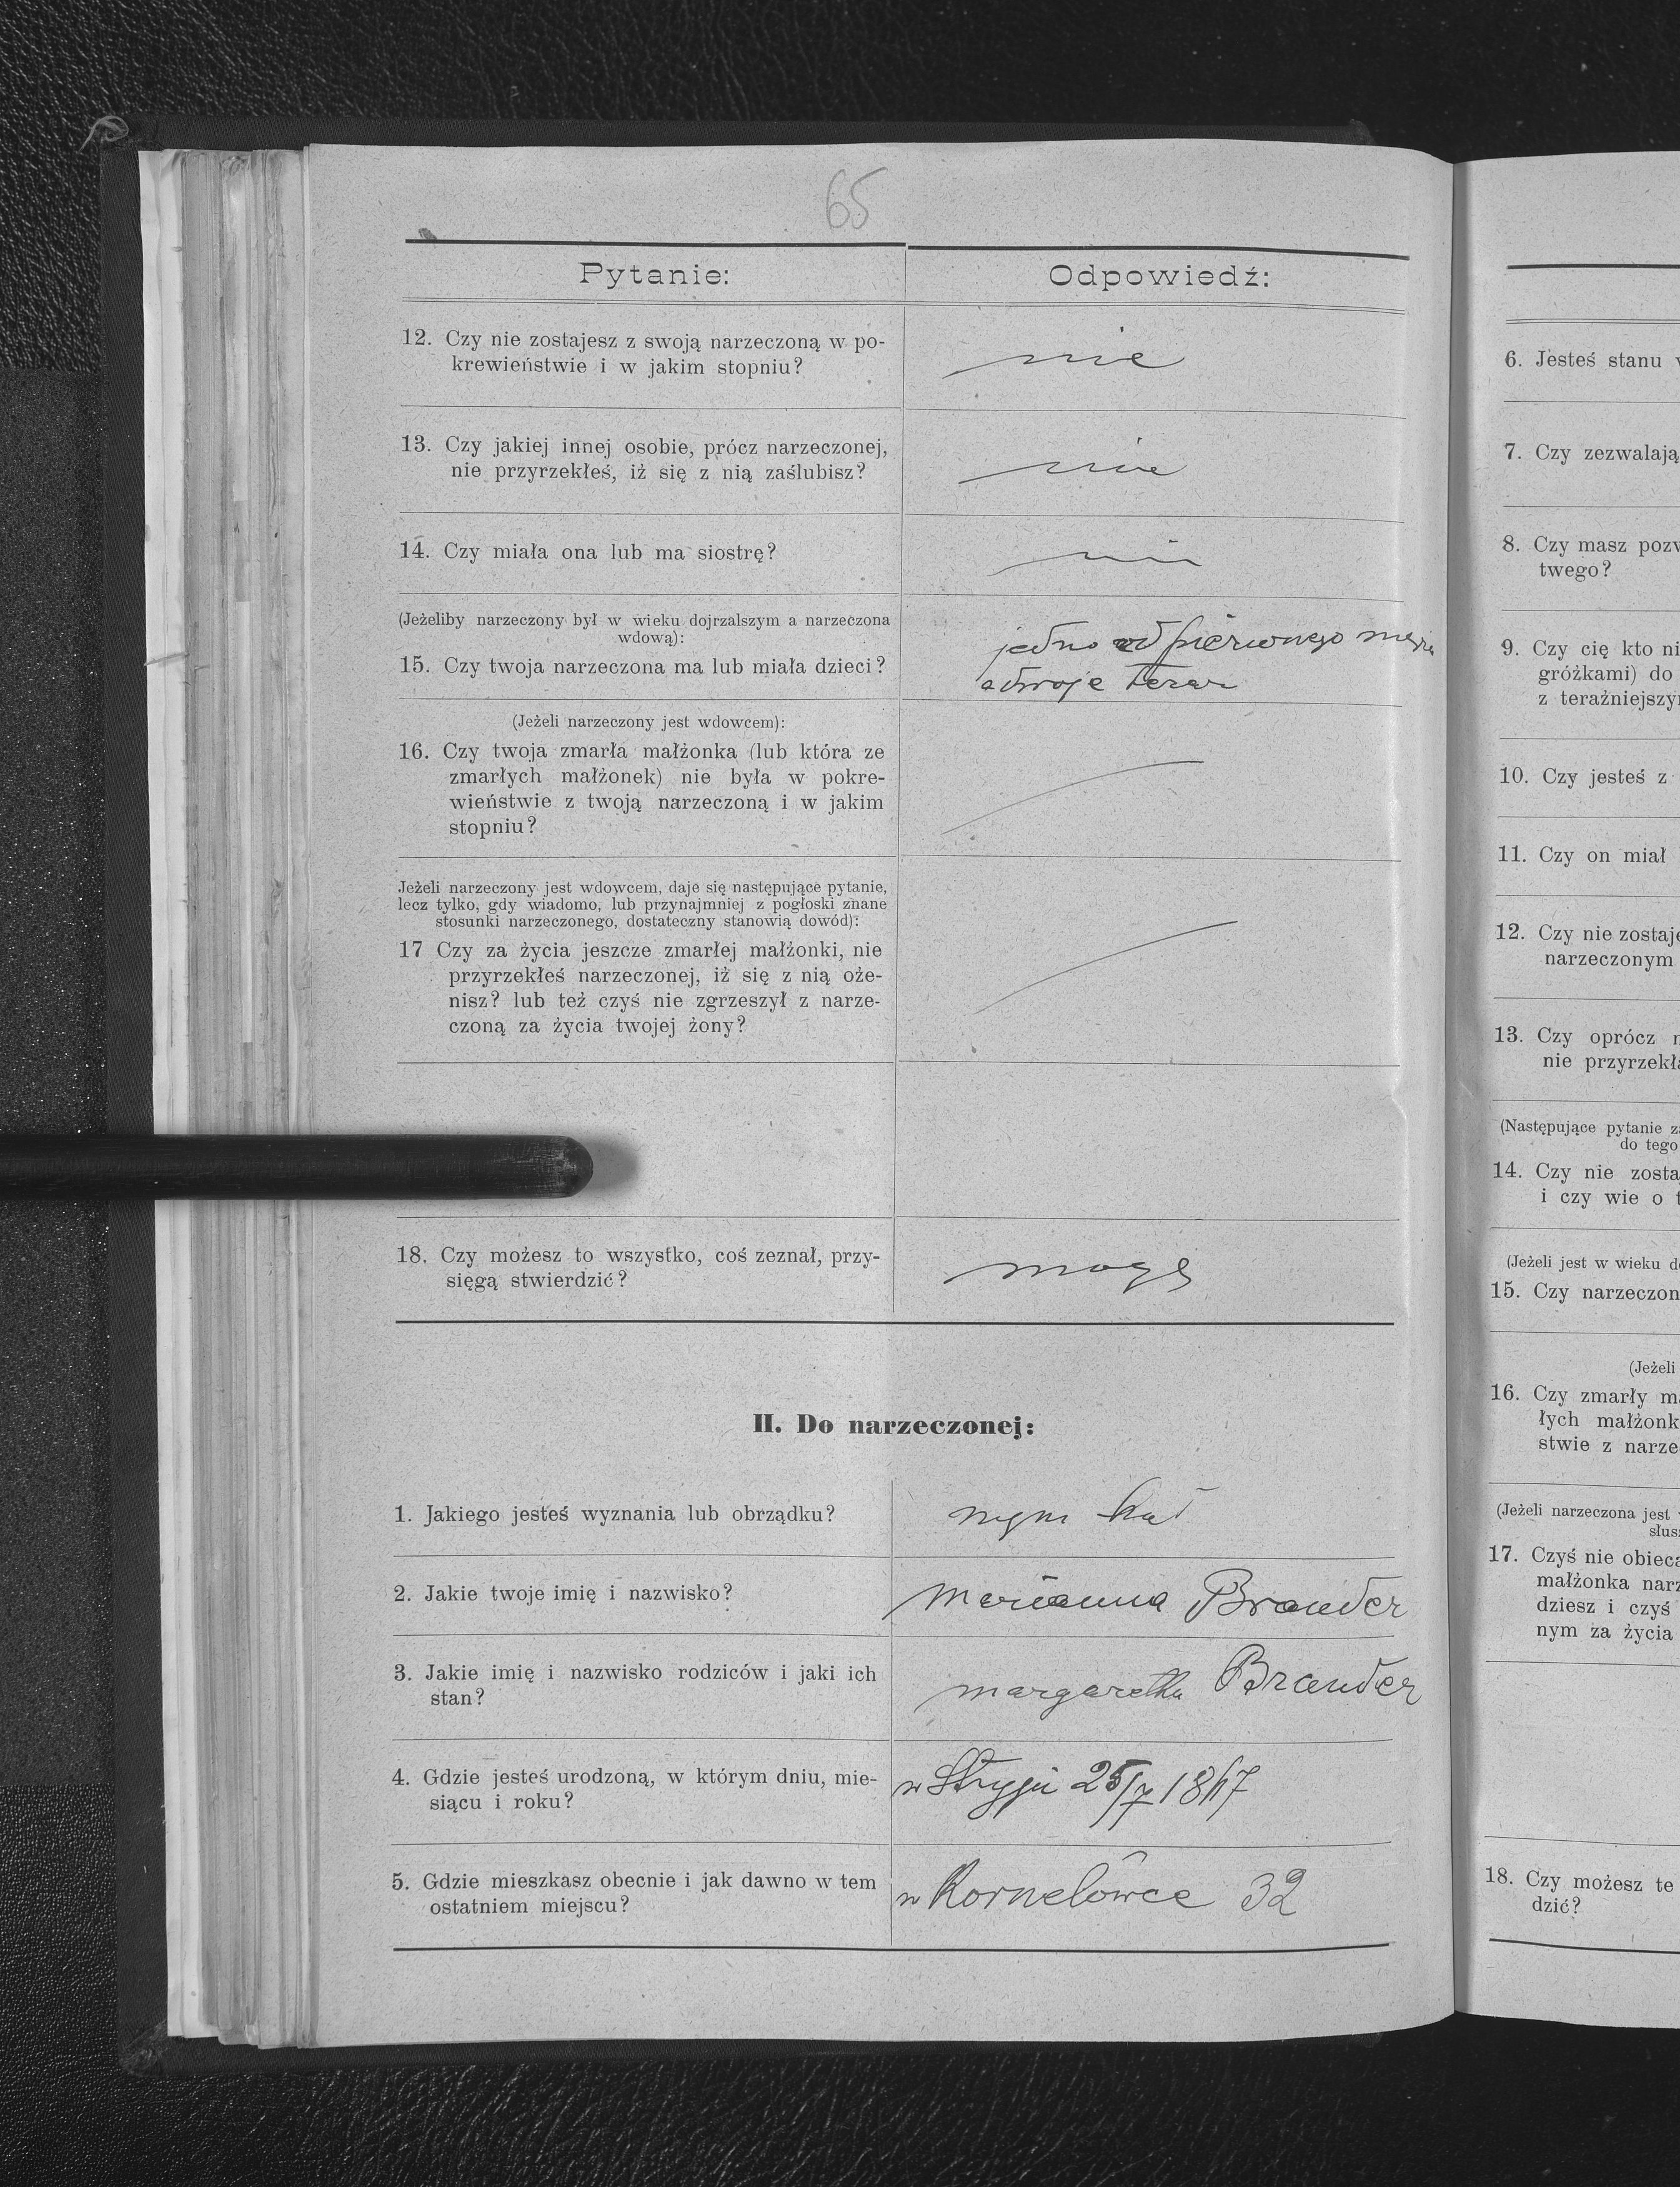 65
Pytanie: Odpowiedź:
12. Czy nie zostajesz z swoją narzeczoną w po-
krewieństwie i w jakim stopniu?
nie
13. Czy jakiej innej osobie, prócz narzeczonej,
nie przyrzekłeś, iż się z nią zaślubisz?
nie
14. Czy miała ona lub ma siostrę?
nie
(Jeżeliby narzeczony był w wieku dojrzalszym a narzeczona
wdową):
15. Czy twoja narzeczona ma lub miała dzieci?
jedno od pierwnego męża
a dwoje teraz
(Jeżeli narzeczony jest wdowcem):
16. Czy twoja zmarła małżonka (lub która ze
zmarłych małżonek) nie była w pokre-
wieństwie z twoją narzeczoną i w jakim
stopniu?
Jeżeli narzeczony jest wdowcem, daje się następujące pytanie,
lecz tylko, gdy wiadomo, lub przynajmniej z pogłoski znane
stosunki narzeczonego, dostateczny stanowią dowód):
17 Czy za życia jeszcze zmarłej małżonki, nie
przyrzekłeś narzeczonej, iż się z nią oże-
nisz? lub też czyś nie zgrzeszył z narze-
czoną za życia twojej żony?
18. Czy możesz to wszystko, coś zeznał, przy-
sięgą stwierdzić?
mogę
II. Do narzeczonej:
1. Jakiego jesteś wyznania lub obrządku?
rzym kat
2. Jakie twoje imię i nazwisko?
Marianna Brander
3. Jakie imię i nazwisko rodziców i jaki ich
stan?
Margaretha Brander
4. Gdzie jesteś urodzoną, w którym dniu, mie-
siącu i roku?
w Stryju 25/7
5. Gdzie mieszkasz obecnie i jak dawno w tem
ostatniem miejscu?
w Kornelówce 32
6. Jesteś stanu
7. Czy zezwalają
8. Czy masz pozw
twego?
9. Czy cię kto ni
gróżkami) do
z teraźniejszy
10. Czy jesteś z
11. Czy on miał
12. Czy nie zostaje
narzeczonym
13. Czy oprócz
nie przyrzekła
(Następujące pytanie z
do tego
14. Czy nie zosta
i czy wie o t
(Jeżeli jest w wieku d
15. Czy narzeczon
(Jeżeli
16. Czy zmarły m
łych małżonk
stwie z narze
(Jeżeli narzeczona jest
słus
17. Czyś nie obieca
małżonka narz
dziesz i czyś
nym za życia
18. Czy możesz te
dzić?